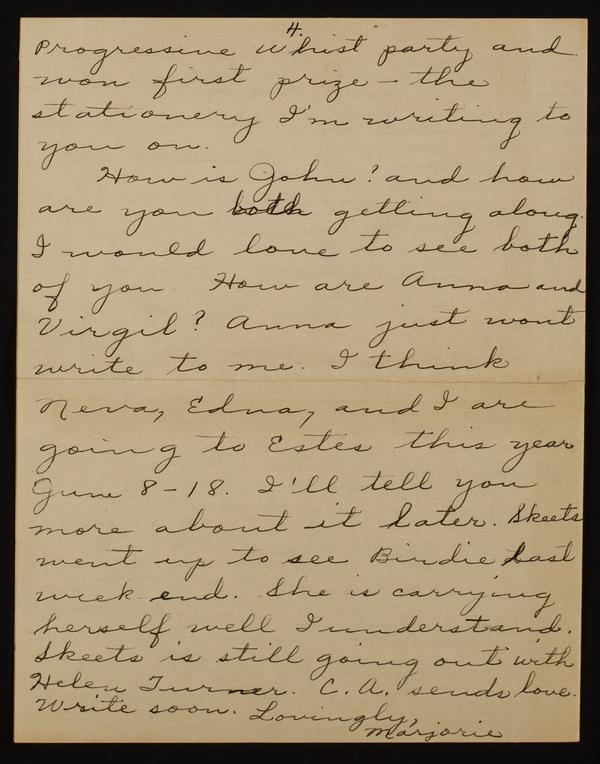 4.
Progressive Whist party and
won first prize – the
stationery I'm writing to
you on.
How is John? and how
are you both getting along.
I would love to see both
of you. How are Anna and
Virgil? Anna just wont
write to me. I think
Neva, Edna, and I are
going to Estes this year
June 8–18. I'll tell you
more about it later. Skeets
went up to see Birdie last
week end. She is carrying
herself well I understand.
Skeets is still going out with
Helen Turner. C. A. sends love.
Write soon. Lovingly,
Marjorie